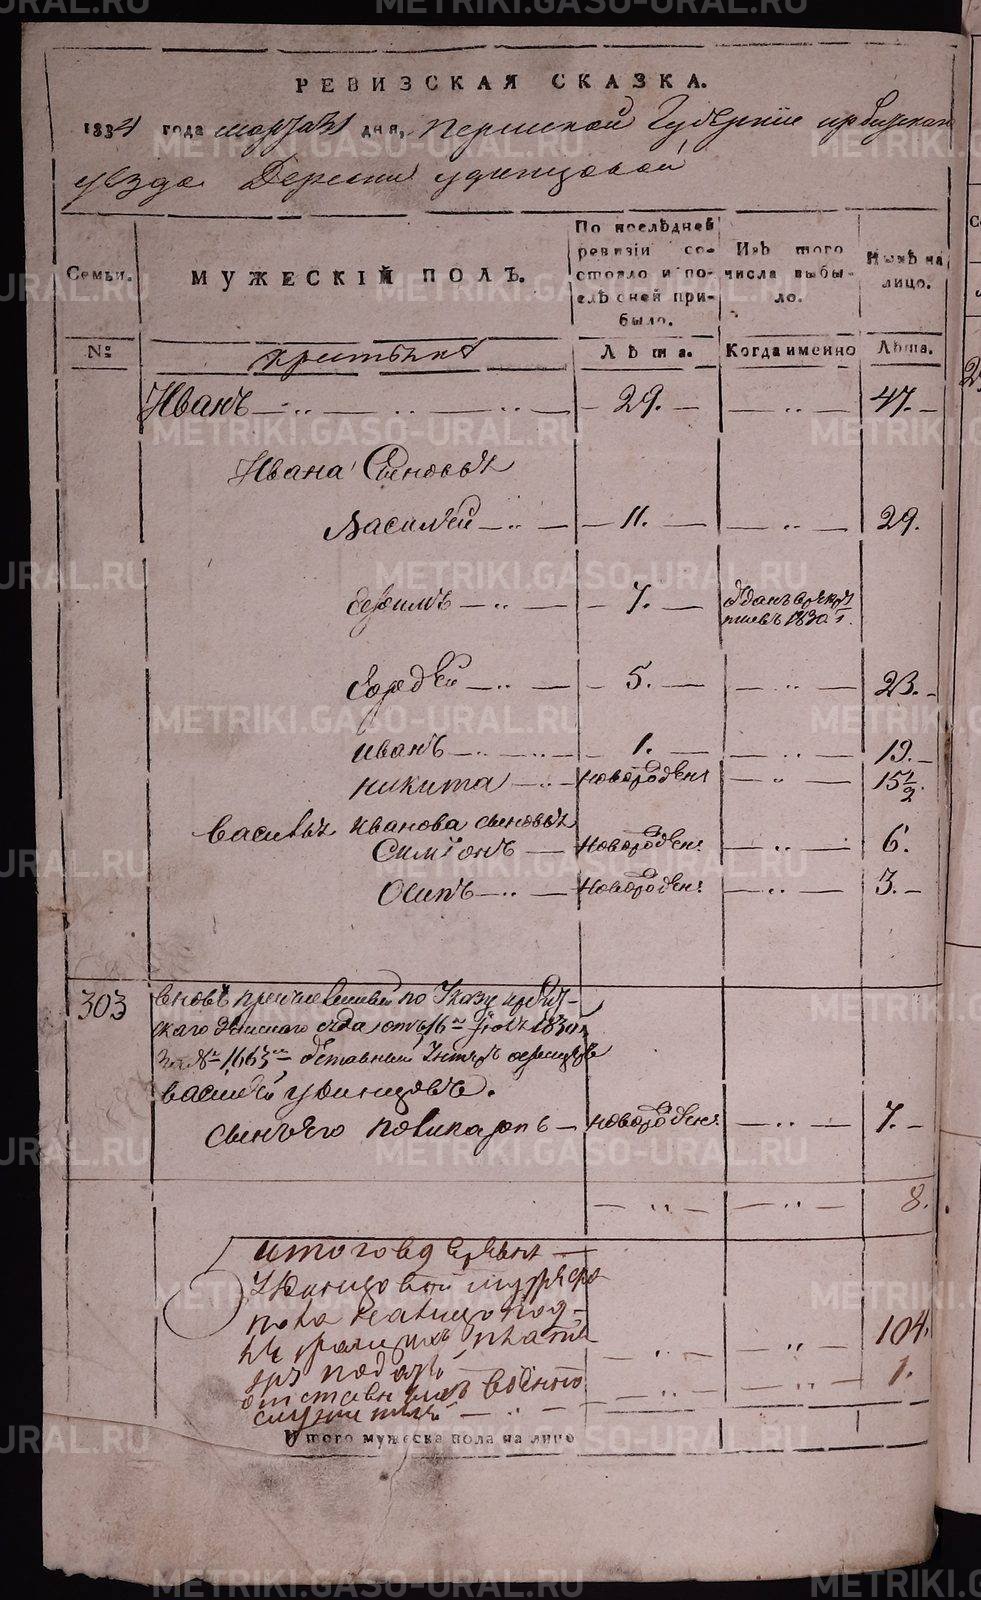 METRIKI.GASO-URAL.RU
РЕВИЗСКАЯ СКАЗКА.
1834 года марта 31 дня, Пермской Губернiи ирбитскаго
уезда Деревни удинцовой
Семьи. МУЖЕСКIЙ ПОЛЪ. По послѣдней ревизiи состояло и послѣ сней прибыло. Изъ того числа выбыло. Нынѣ на лицо.
№ крестьяне Лѣта. Когда именно Лѣта.
Иванъ 29. 47.
Ивана Сыновья
Василей 11. 29.
Ефимъ 7. отданъ врекруты въ 1830 г.
5. 23.
иванъ 1. 19.
никита новорожден: 15 1/2.
василья иванова сыновья
Симионъ новорожден: 6.
Осипъ новорожден: 3.
303 вновь причисленный по Указу ирбит-
скаго Земскаго суда отъ 16го 1830
за № 1,663м отставный Унтеръ офицеръ
василей удинцовъ.
сынъ его поликарпъ новорожден: 7.
8.
итого в деревне
Удинцовой мужеска
пола налицо под-
отставныхъ военно
служителей
104.
1.
Итого мужеска пола на лицо